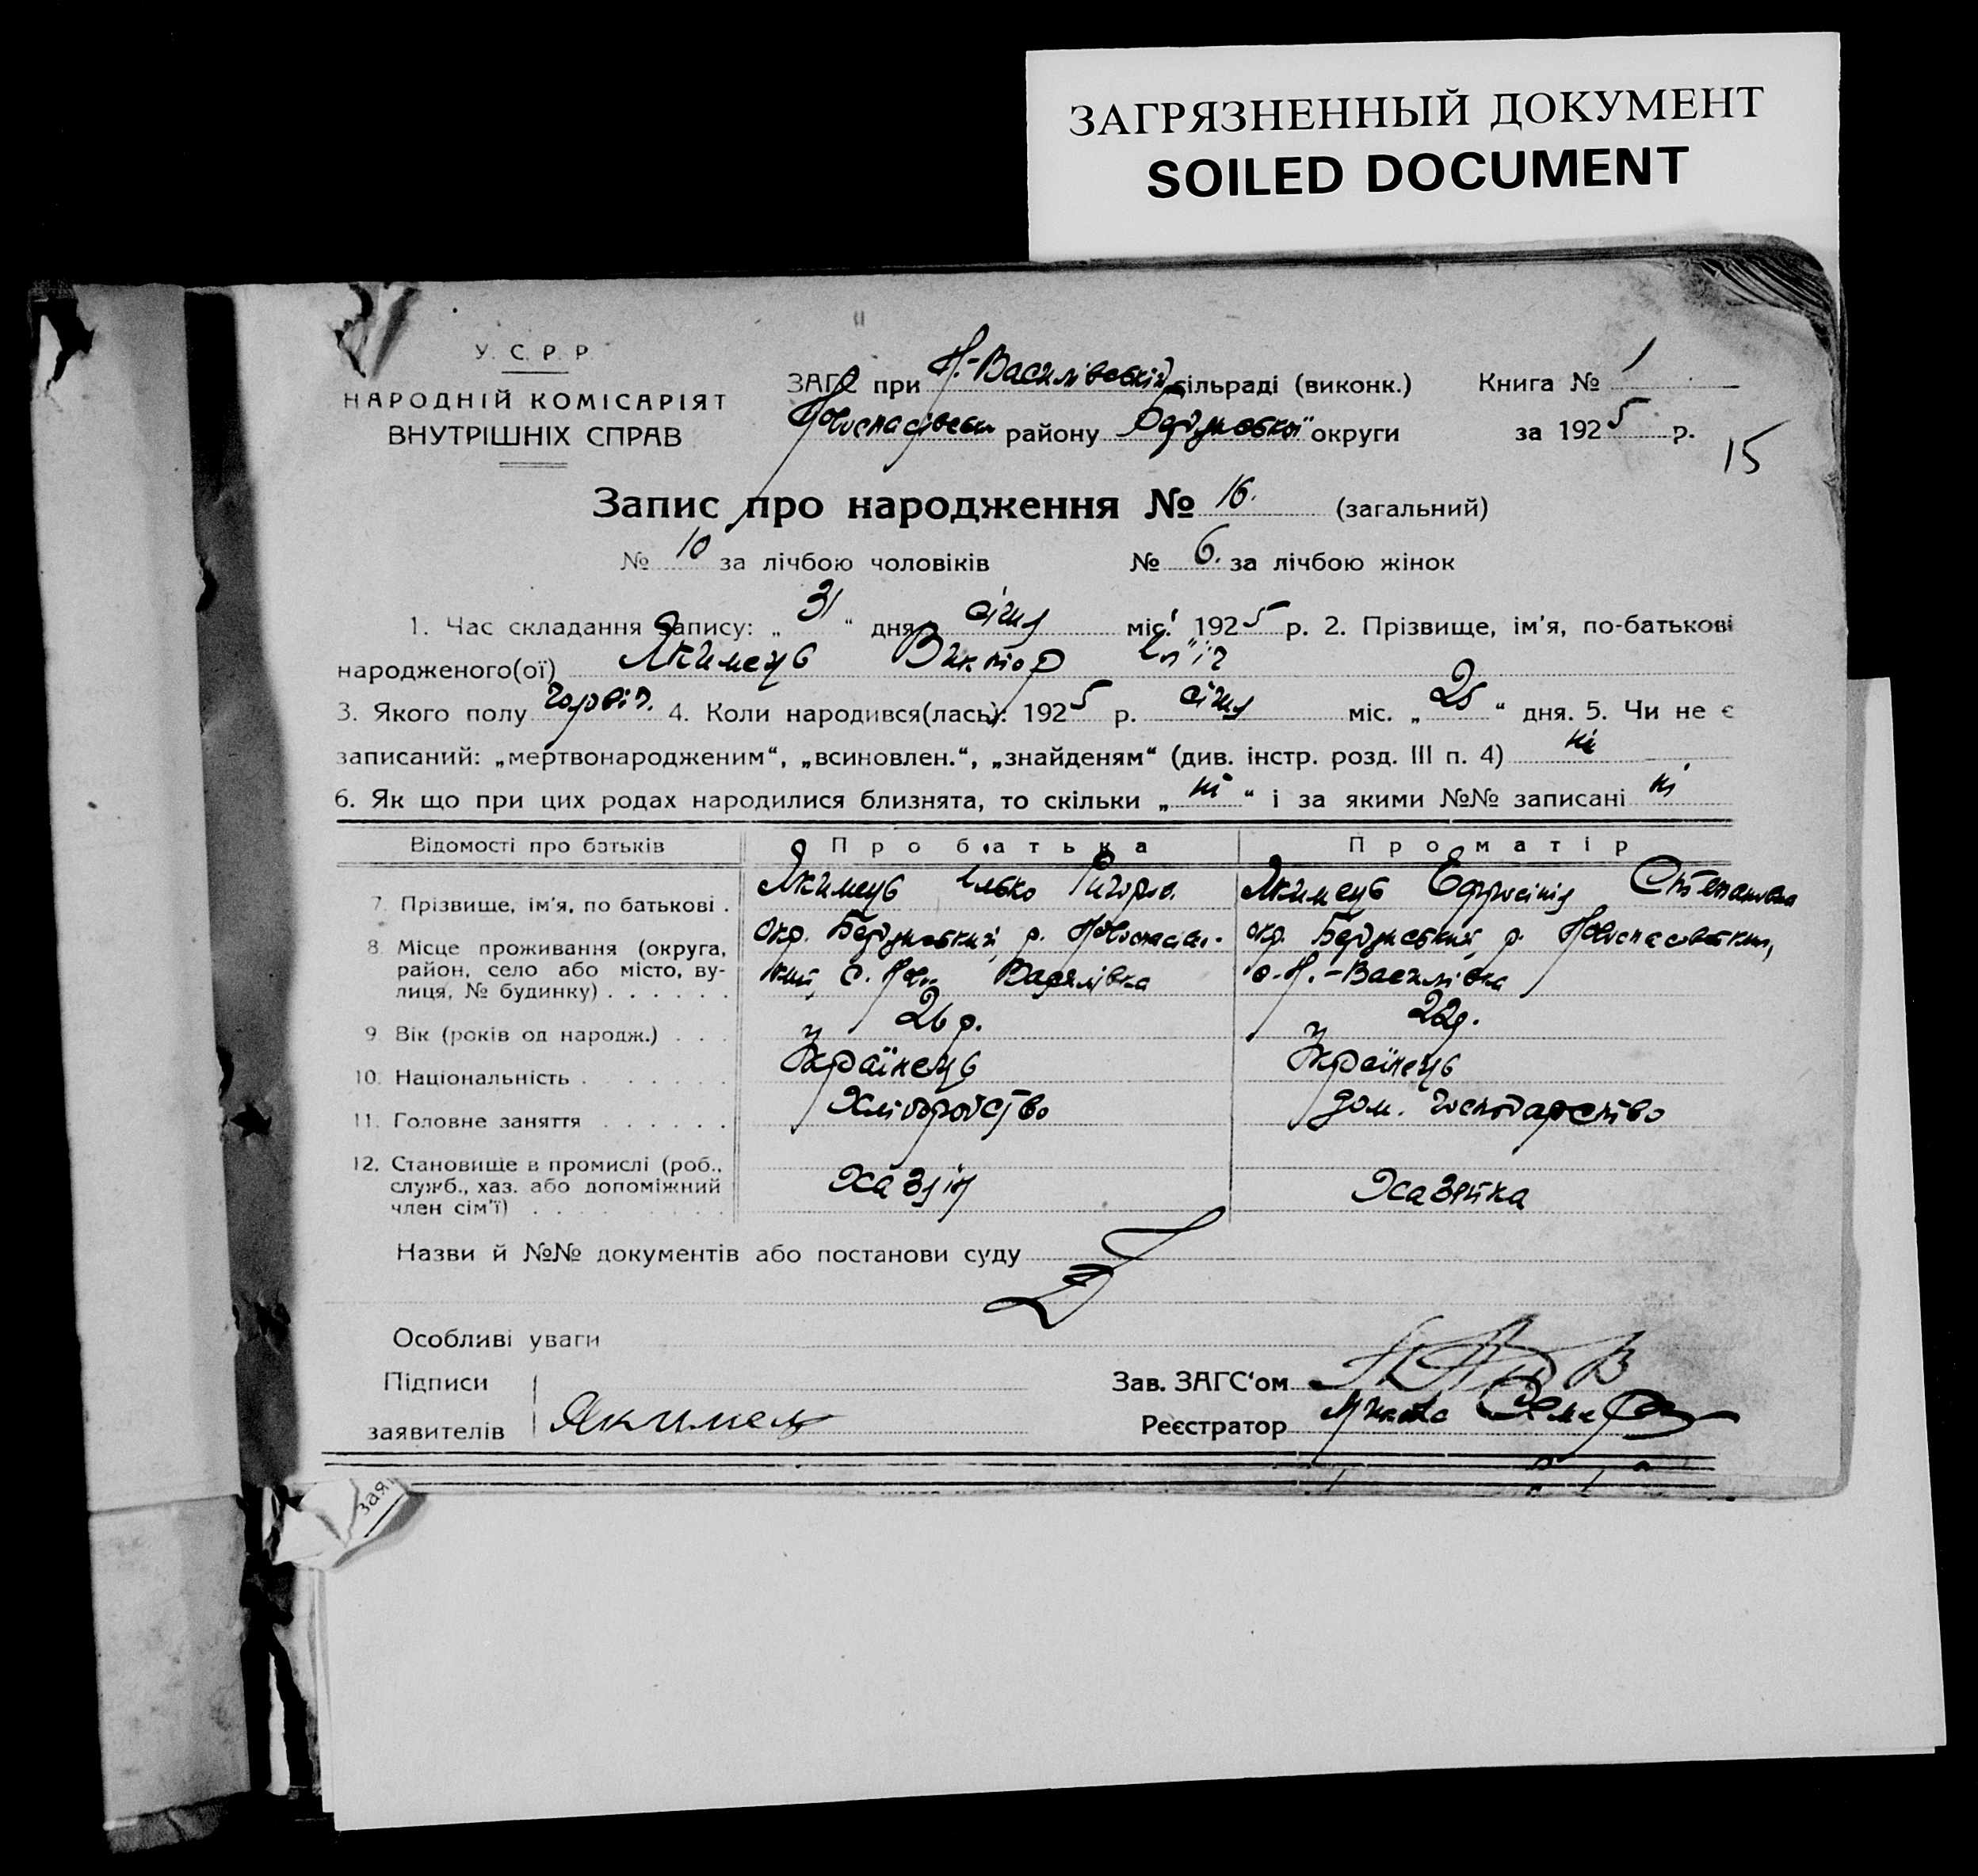 ЗАГРЯЗНЕННЫЙ ДОКУМЕНТ
SOILED DOCUMENT
У. С. Р. Р.
НАРОДНІЙ КОМІСАРІЯТ
ВНУТРІШНІХ СПРАВ
ЗАГС при Н.-Василівській сільраді (виконк.)
району Бердянської округи
Книга № 1
за 1925 р.
15
Запис про народження № 16. (загальний)
№ 10 за лічбою чоловіків № 6. за лічбою жінок
1. Час складання запису: „ 31 “ дня січня міс. 1925 р. 2. Прізвище, ім'я, по-батькові
народженого(ої) Якимець Виктор Ілліч
3. Якого полу 4. Коли народився(лась): 1925 р. січня міс. „ “ дня. 5. Чи не є
записаний: „мертвонародженим“, „всиновлен.“, „знайденям“ (див. інстр. розд. III п. 4) ні
6. Як що при цих родах народилися близнята, то скільки „ ні “ і за якими №№ записані ні
Відомості про батьків Про батька Про матір
7. Прізвище, ім'я, по батькові . Якимець Ілько Якимець Ефросінія Степановна
8. Місце проживання (округа, район, село або місто, вулиця, № будинку) . . . . . .
окр. Бердянський р. Новоспасівський, с. Нов. Василівка
окр. Бердянський р. Новоспасовський, с. Н.-Василівка
9. Вік (років од народж.) . . . 26 р. 22 р.
10. Національність . . . . . . . Українець Українець
11. Головне заняття . . . . . . Хліборобство дом. господарство
12. Становище в промислі (роб.,
служб., хаз. або допоміжний
член сім'ї) . . . . . . . . . Хазяін Хазяйка
Назви й №№ документів або постанови суду
Особливі уваги
Підписи
заявителів Якимець
Зав. ЗАГС‘ом
Реєстратор
зая